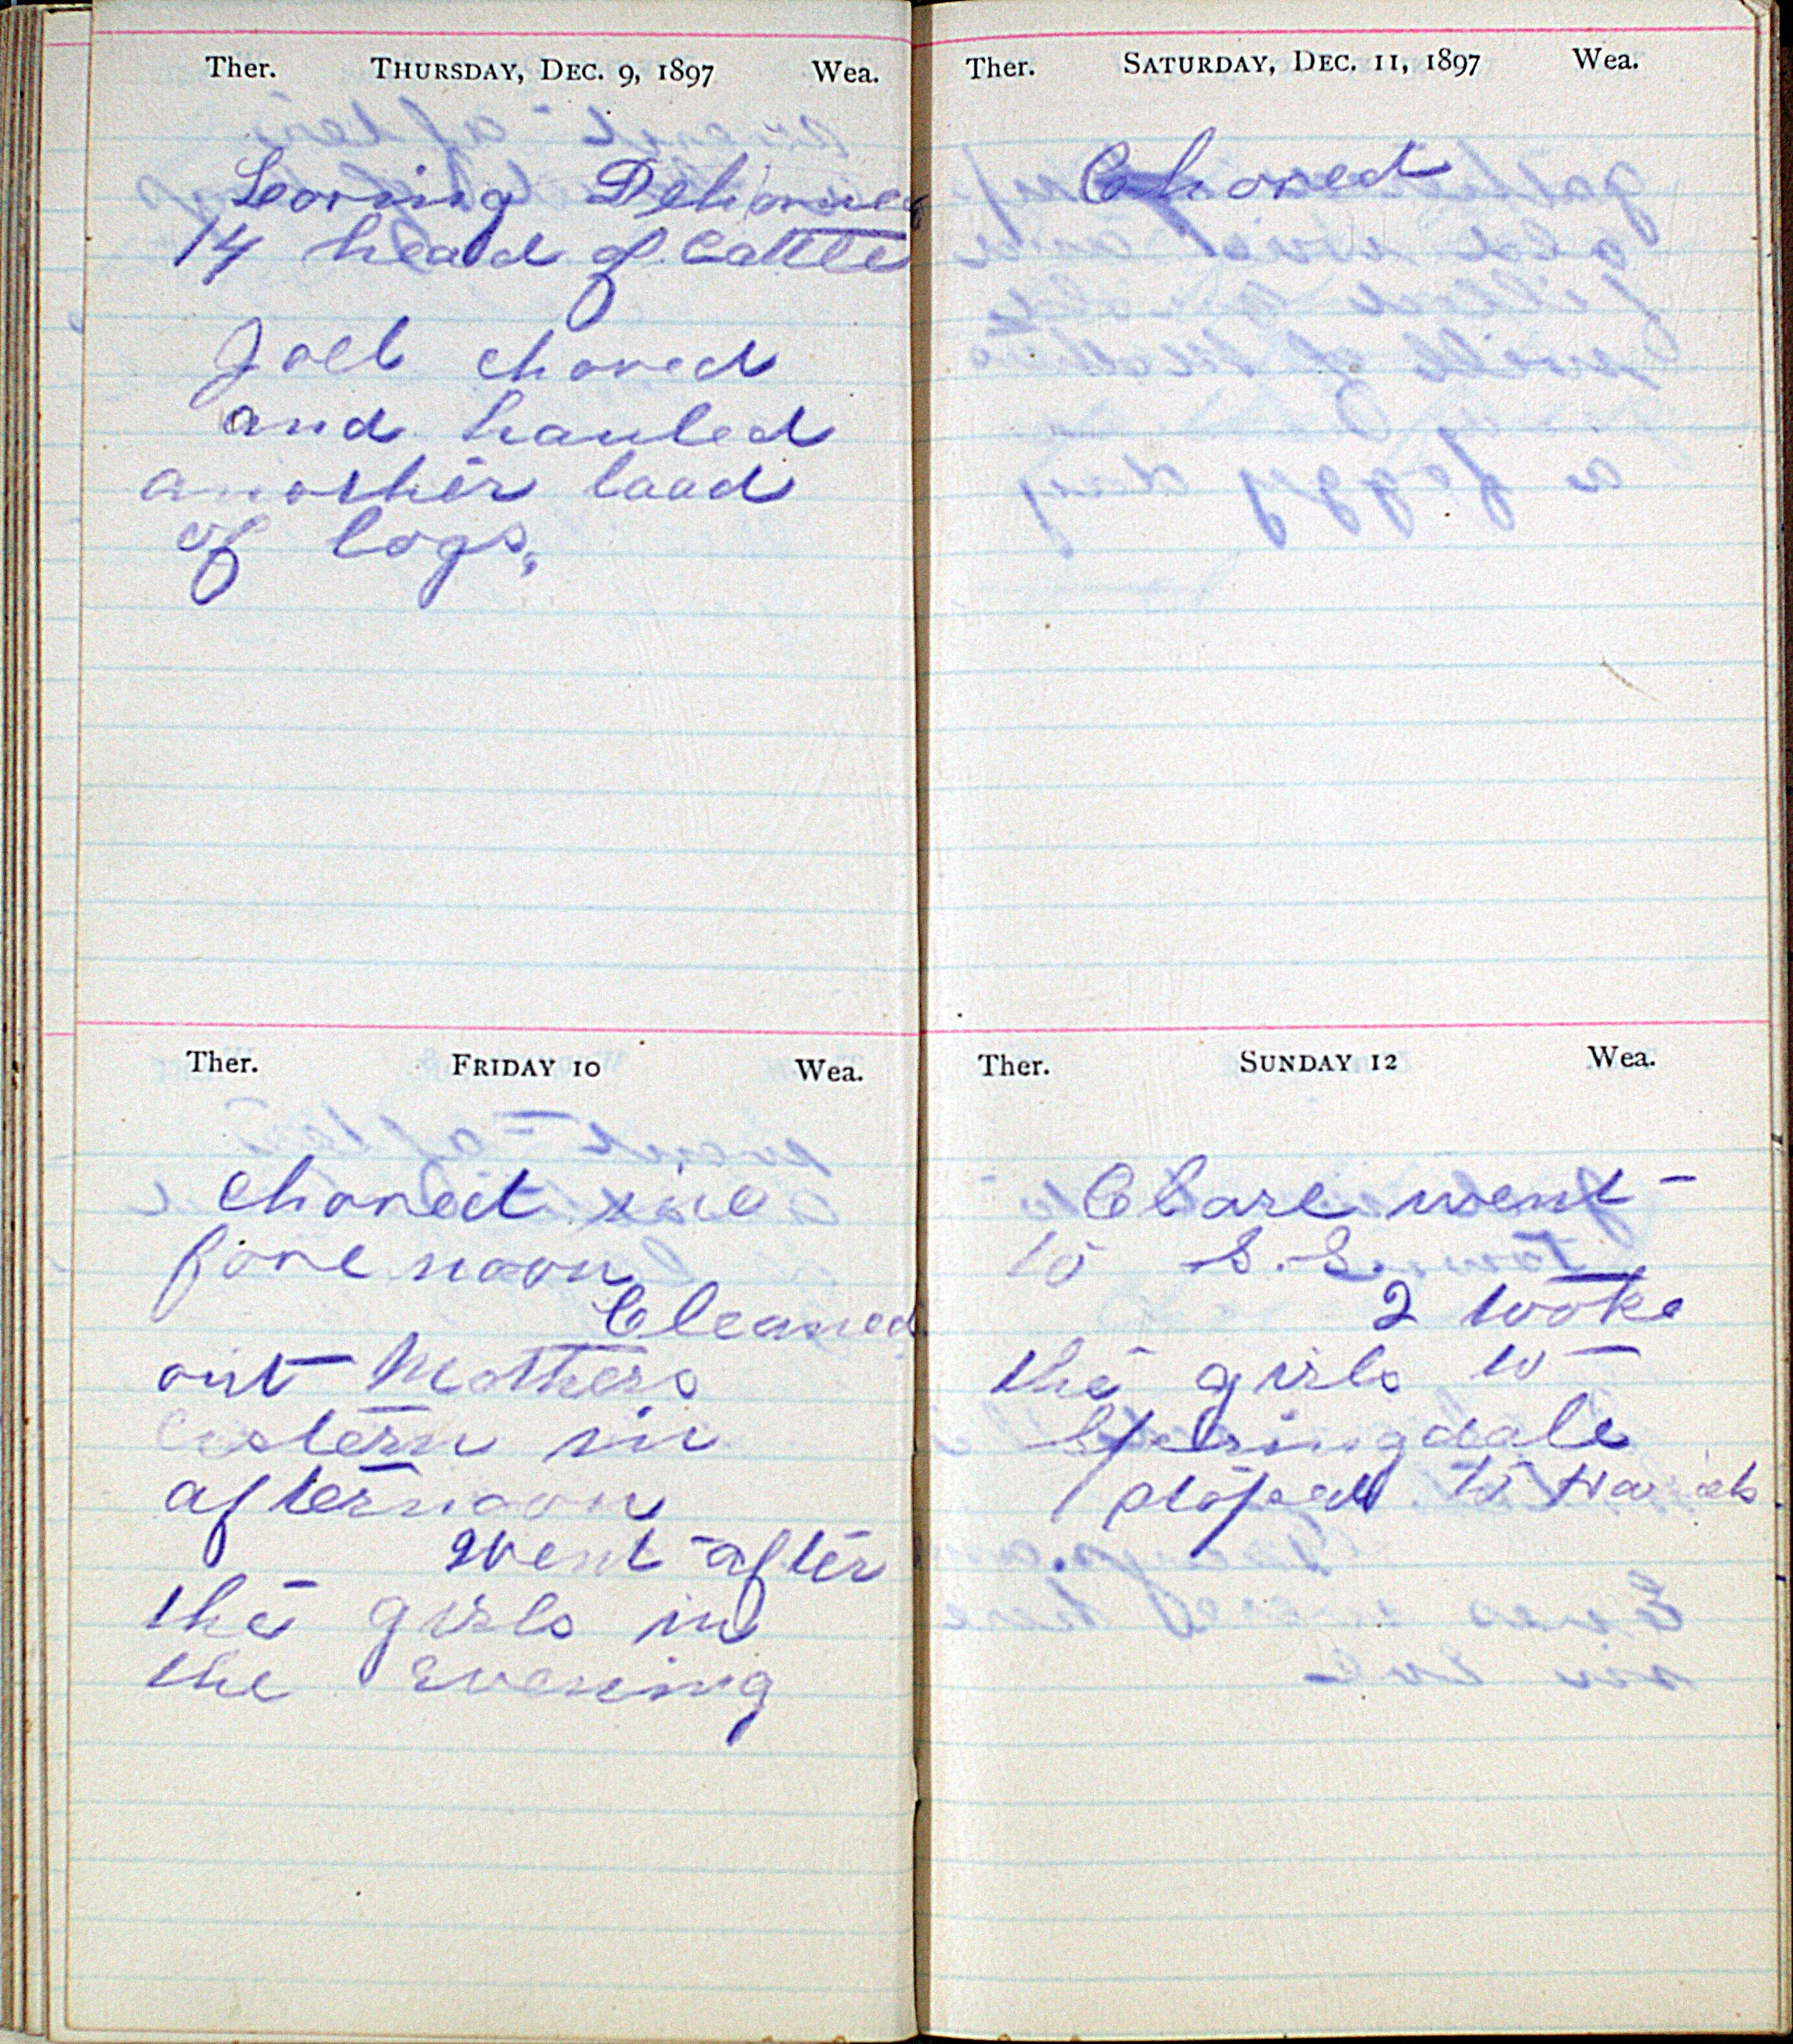 Ther. THURSDAY, DEC. 9, 1897 Wea.
Loring Dehorned
14 head of Cattle
Joel chored
and hauled
another load
of logs.
Ther. FRIDAY 10 Wea.
Chored in
fore noon
Cleaned
out Mothers
Cestern in
afternoon
went after
the girls in
the evening
Ther. SATURDAY, DEC. 11, 1897 Wea.
Chored
Ther. SUNDAY 12 Wea.
Clare went
to S. S.
I tooke
the girls to
Springdale
stoped to